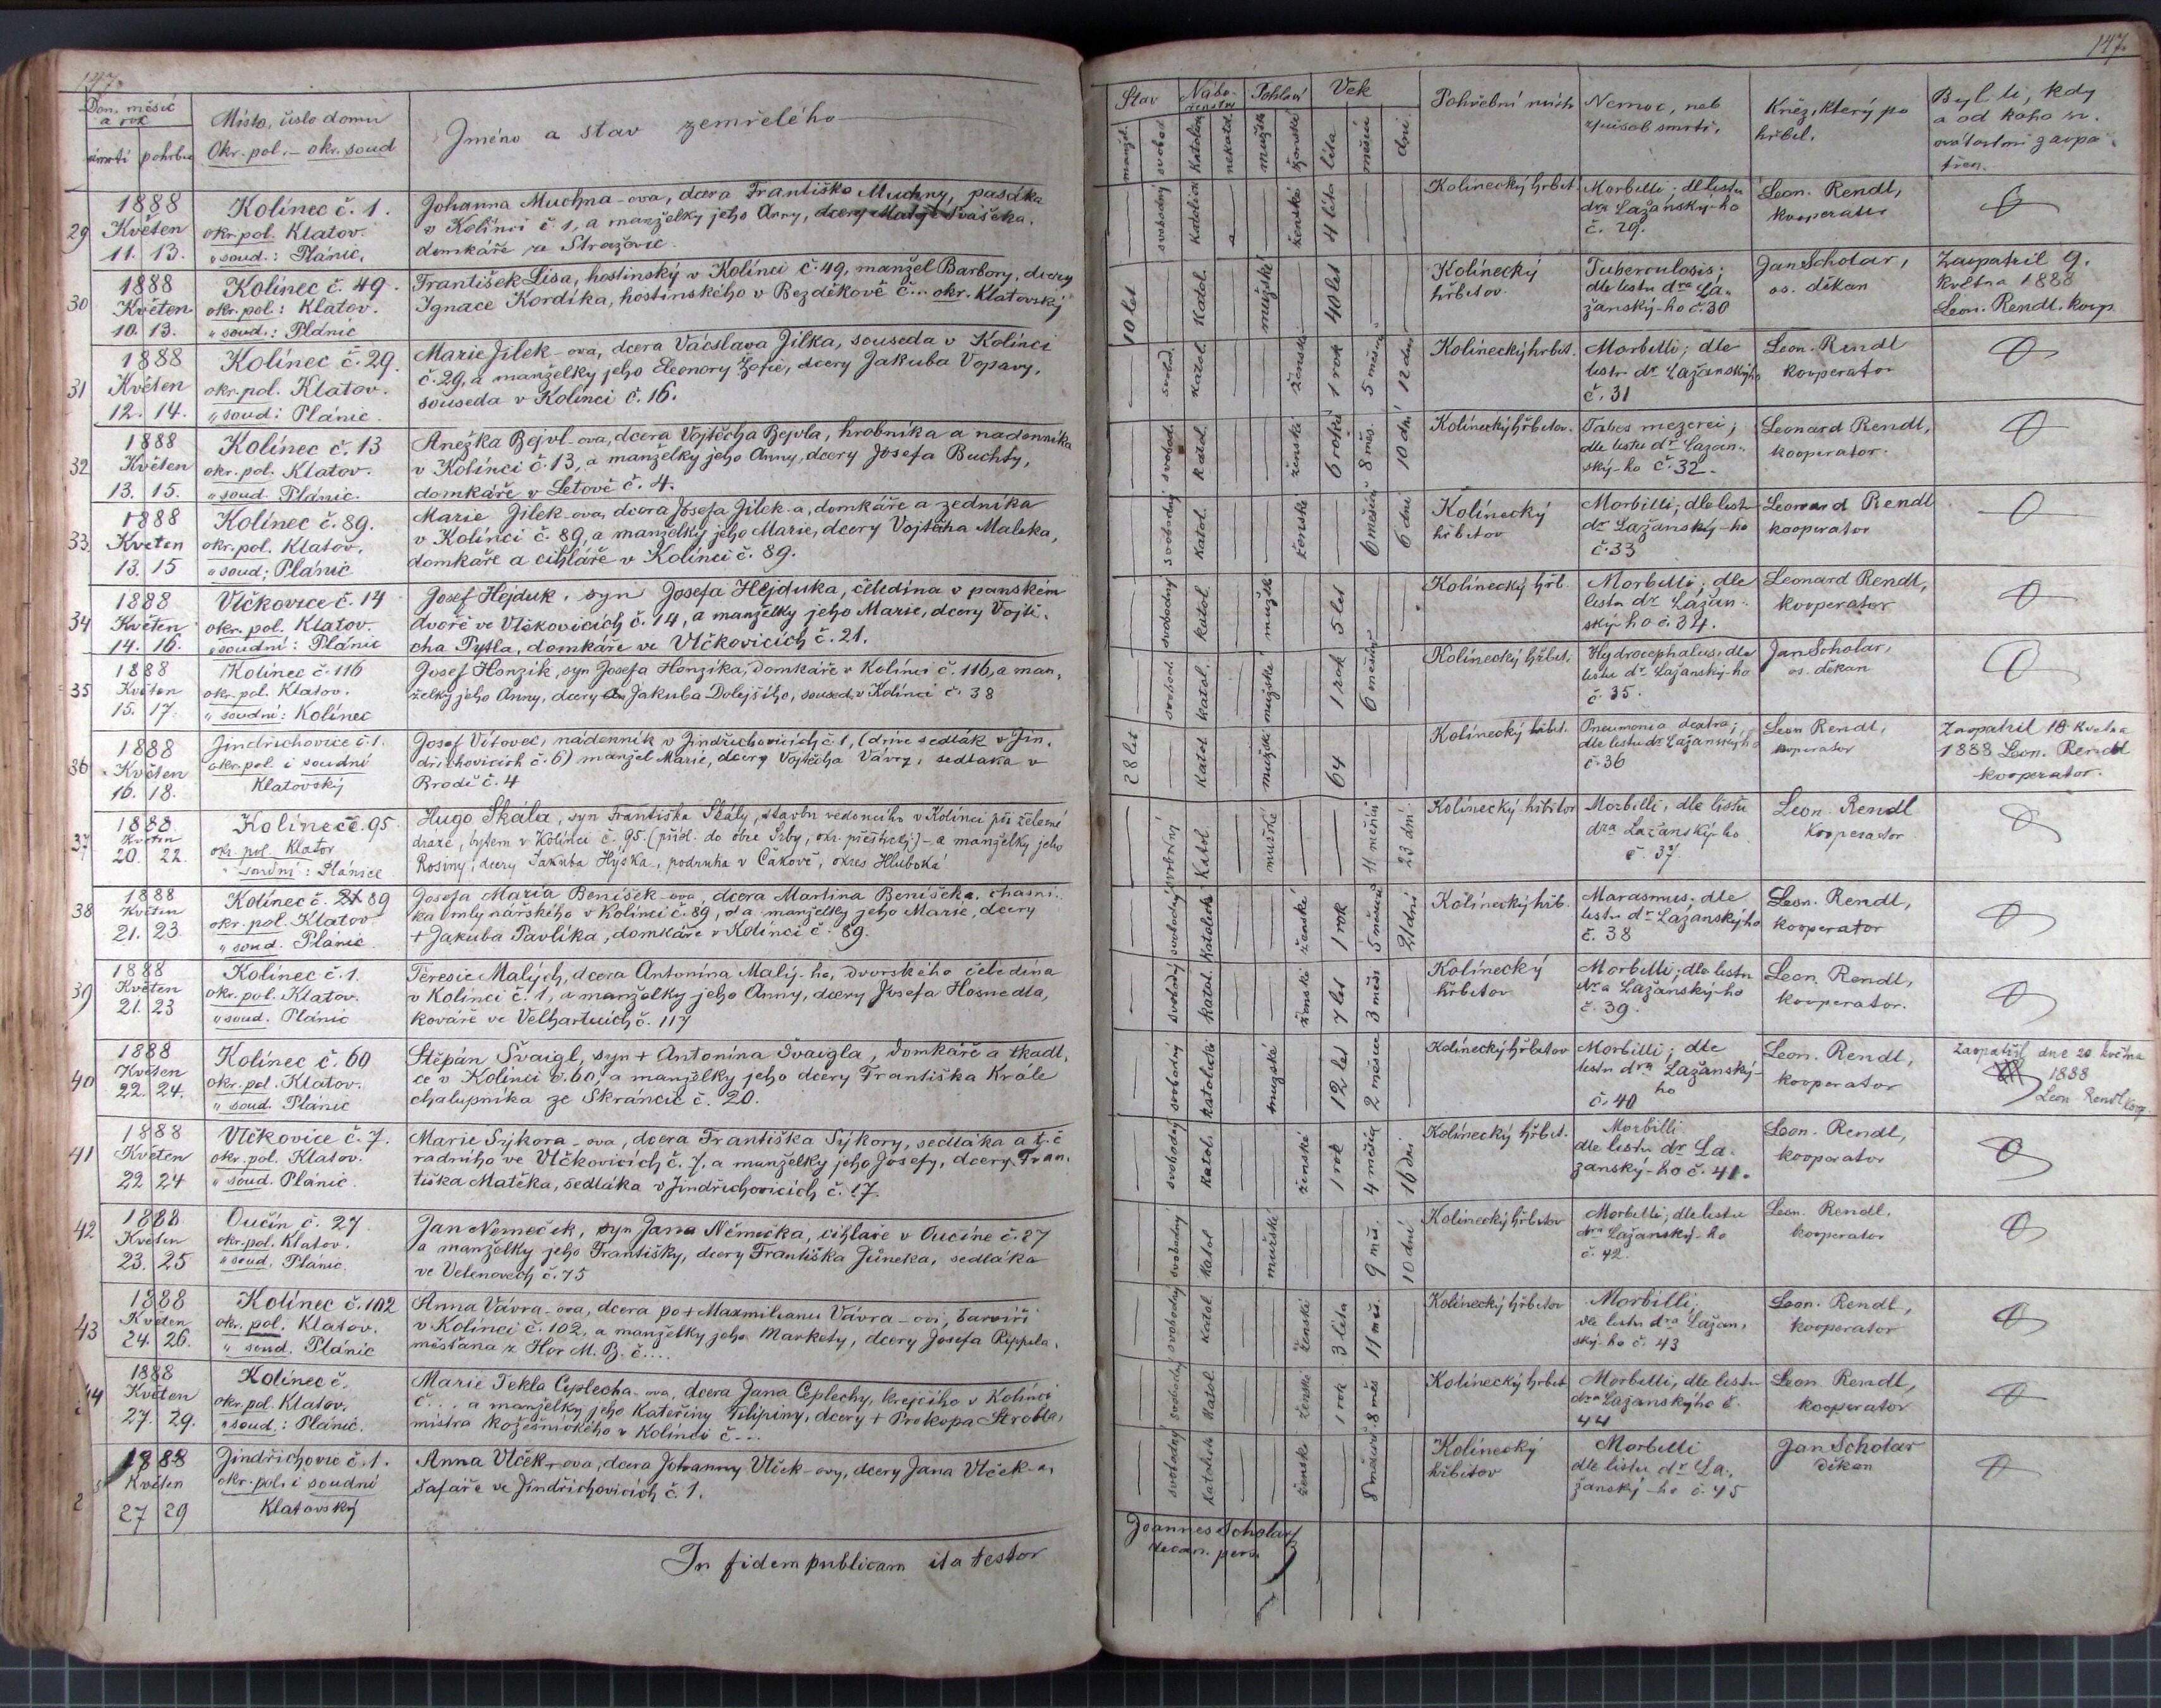 147.
Den, měsíc
a rok
smrti pohrbu
Místo, číslo domu
Okr. pol. – okr. soud
Jméno a stav zemřelého
29
1888
Květen
11. 13.
Kolínec č. 1.
okr. pol. Klatov.
„ soud.: Plánic.
Johanna Muchna-ova, dcera Františka Muchny, pasáka
v Kolínci č 1, a manželky jeho Anny, dcery Matěje Sváčka,
domkáře ze Stražovic.
30
1888
Květen
10. 13.
Kolínec č. 49.
okr. pol.: Klatov.
„ soud.: Plánic
František Lisa, hostinský v Kolínci č. 49, manžel Barbory, dcery
Ignace Kordíka, hostinského v Bezděkově č... okr. Klatovský
31
1888
Květen
12. 14.
Kolínec č. 29.
okr. pol. Klatov.
„ soud: Plánic.
Marie Jílek-ova, dcera Václava Jílka, souseda v Kolínci
č. 29, a manželky jeho Eleonory Žofie, dcery Jakuba Vopavy,
souseda v Kolínci č. 16.
32
1888
Květen
13. 15.
Kolínec č. 13
okr. pol. Klatov.
„ soud. Plánic.
Anežka Bejvl-ova, dcera Vojtěcha Bejvla, hrobníka a nadenníka
v Kolínci č. 13, a manželky jeho Anny, dcery Josefa Buchty,
domkáře v Letově č. 4.
33
1888
Květen
13. 15
Kolínec č. 89.
okr. pol. Klatov.
„ soud; Plánic
Marie Jílek-ova, dcera Josefa Jílek-a, domkáře a zedníka
v Kolínci č. 89, a manželky jeho Marie, dcery Vojtěcha Maleka,
domkáře a cihláře v Kolínci č. 89.
34
1888
Květen
14. 16.
Vlčkovice č. 14
okr. pol. Klatov.
„ soudní: Plánic
Josef Hejduk, syn Josefa Hejduka, čeledína v panském
dvoře ve Vlčkovicích č. 14, a manželky jeho Marie, dcery Vojtě-
cha Pytla, domkáře ve Vlčkovicích č. 21.
35
1888
Květen
15. 17.
Kolínec č. 116
okr. pol. Klatov.
„ soudní: Kolínec
Josef Honzík, syn Josefa Honzíka, domkáře v Kolínci č. 116, a man,
želky jeho Anny, dcery Jakuba Dolejšího, soused. v Kolínci č. 38
36
1888
Květen
16. 18.
Jindřichovice č. 1.
okr. pol. i soudní
Klatovský
Josef Vítovec, nádenník v Jindřichovicích č. 1, (dříve sedlák v Jin,
dřichovicích č. 6) manžel Marie, dcery Vojtěcha Vávry, sedláka v
Brodě č. 4
37
1888
Květen
20. 22.
Kolinec č. 95
okr. pol. Klatov
„ soudní: Plánice
Hugo Skála, syn Františka Skály, stavbu vedoucího v Kolínci při železné
dráze, bytem v Kolínci č. 95. (přísl. do obce Srby, okr. přeštický) – a manželky jeho
Rosiny, dcery Jakuba Hýska, podruha v Čakově, okres Hluboká
38
1888
Květen
21. 23.
Kolínec č. 89
okr. pol. Klatov.
„ soud. Plánic.
Josefa Maria Benišek-ova, dcera Martina Benišeka, chasní-
ka mlynářského v Kolínci č. 89, a manželky jeho Marie, dcery
+ Jakuba Pavlíka, domkáře v Kolínci č. 89.
39
1888
Květen
21. 23
Kolínec č. 1.
okr. pol. Klatov.
„ soud. Plánic
Teresie Malých, dcera Antonína Malý-ho, dvorského čeledína
v Kolínci č. 1, a manželky jeho Anny, dcery Josefa Hosnedla,
kováře ve Velhartících č. 117
40
1888
Květen
22. 24.
Kolínec č. 60
okr. pol. Klatov.
„ soud. Plánic
Štěpán Švaigl, syn + Antonína Švaigla, domkáře a tkadl,
ce v Kolínci č. 60, a manželky jeho dcery Františka Krále
chalupníka ze Skránčic č. 20.
41
1888
Květen
22 24
Vlčkovice č. 7.
okr. pol. Klatov.
„ soud. Plánic.
Marie Sýkora-ova, dcera Františka Sýkory, sedláka a t. č
radního ve Vlčkovicích č. 7, a manželky jeho Josefy, dcery Fran,
tiška Matěka, sedláka v Jindřichovicích č. 17.
42
1888
Květen
23. 25
Oučín č. 27
okr. pol. Klatov.
„ soud. Plánic.
Jan Němeček, syn Jana Němečka, cihláře v Oučíne č. 27
a manželky jeho Františky, dcery Františka Jůneka, sedláka
ve Velenovech č. 75
43
1888
Květen
24. 26.
Kolínec č. 102
okr. pol. Klatov.
„ soud. Plánic
Anna Vávra-ova, dcera po + Maxmilianu Vávra-ovi, barvíři
v Kolínci č. 102, a manželky jeho Markety, dcery Josefa Rippela,
měšťana z Hor M. B. č....
44
1888
Květen
27. 29.
Kolínec č.
okr. pol. Klatov.
„ soud.: Plánic.
Marie Tekla Ceplecha-ova, dcera Jana Ceplechy, krejcího v Kolínci
č... a manželky jeho Kateřiny Filipiny, dcery + Prokopa Strobla,
mistra kožešnického v Kolínci č...
1888
Květen
27 29
Jindřichovic č. 1.
okr. pol. i soudní
Klatovský
Anna Vlček-ova, dcera Johanny Vlček-ovy, dcery Jana Vlček-a,
šafáře ve Jindřichovicích č. 1.
In fidem publicam ita testor
147.
Stav
Nábo-
ženství
Pohlaví
Věk
manžel.
svobod.
katolík
nekatol.
mužské
ženské
léta
měsíců
dní.
Pohřební místo
Nemoc, neb
způsob smrti.
Kněz, který po
hřbil.
Byl li, kdy
a od koho sv.
svátostmi zaopa-
třen.
svobodný
katolík
ženské
4 léta
Kolínecký hrbit.
Morbilli; dle listu
dra Lažanský-ho
č. 29.
Leon. Rendl,
kooperator
10 let
Katol.
mužské
40 let
Kolínecký
hřbitov.
Tuberculosis;
dle listu dra La-
žanský-ho č. 30
Jan Scholar,
os. děkan
Zaopatřil 9.
května 1888
Leon. Rendl. koop.
svobod.
katol.
ženské
1 rok
5 měsíců
12 dní
Kolínecký hrbit.
Morbilli; dle
listu dr Lažanskýho
č. 31
Leon. Rendl
kooperator
svobod.
katol.
ženská
6 roků
8 měs.
10 dní
Kolínecký hřbitov.
Tabes mezerei;
dle listu dr Lažan-
ský-ho č. 32.
Leonard Rendl,
kooperator.
svobodný
katol.
ženské
6 měsíců
6 dní
Kolínecký
hřbitov
Morbilli; dle listu
dr Lažanský-ho
č. 33
Leonard Rendl
kooperator
svobodný
katol.
mužské
5 let
Kolínecký hřb.
Morbilli; dle
listu dr Lažan-
ský-ho č. 34.
Leonard Rendl,
kooperator
svobod.
katol.
mužské
1 rok
6 měsíců
Kolínecký hřbit.
Hydrocephalus; dle
listu dr Lažanský-ho
č. 35.
Jan Scholar,
os. děkan
28 let
Katol.
mužské
64
Kolínecký hřbit.
Pneumonia dextra;
dle listu dr Lažanskýho
č. 36
Leon Rendl,
kooperator
Zaopatřil 18 května
1888 Leon. Rendl
kooperator.
svobodný
Katol
mužské
11. měsíců
23 dní.
Kolínecký hřbitov
Morbilli, dle listu
dra Lažanský-ho
č. 37.
Leon. Rendl
Kooperator
svobodný
Katolická
ženské
1 rok
5 měsíců
21 dní
Kolínecký hřb.
Marasmus. dle
listu dr Lažanskýho
č. 38
Leon. Rendl,
kooperator
svobodný
katol.
ženské
7 let
3 měs
Kolínecký
hřbitov
Morbilli; dle listu
dra Lažanský-ho
č. 39.
Leon. Rendl,
kooperator.
svobodný
katolické
mužské
12 let
2 měsíce
Kolínecký hřbitov
Morbilli; dle
listu dra Lažanský-
ho
č. 40
Leon. Rendl,
kooperator
Zaopatřil dne 20 května
1888
Leon Rendl koop.
svobodný
katol.
ženské
1 rok
4 měsíce
16 dní
Kolínecký hřbit.
Morbilli
dle listu dr La-
žanský-ho č. 41.
Leon. Rendl,
kooperator
svobodný
katol
mužské
9 měs.
10 dní
Kolínecký hřbitov
Morbilli; dle listu
dra Lažanský-ho
č. 42.
Leon. Rendl.
kooperator
svobodný
katol
ženské
3 léta
11 měs.
Kolínecký hřbitov
Morbilli;
dle listu dra Lažan,
ský-ho č. 43
Leon. Rendl,
kooperator
svobodný
katol.
ženské
1 rok
8 měs
Kolínecký hřbit
Morbilli, dle listu
dra Lažanskýho č.
44
Leon. Rendl,
kooperator
svobodný
katolické
ženské
8 měsíců
Kolínecký
hřbitov
Morbilli
dle listu dr La-
žanský-ho č. 45
Jan Scholar
děkan
Joannes Scholar
decan. pers.